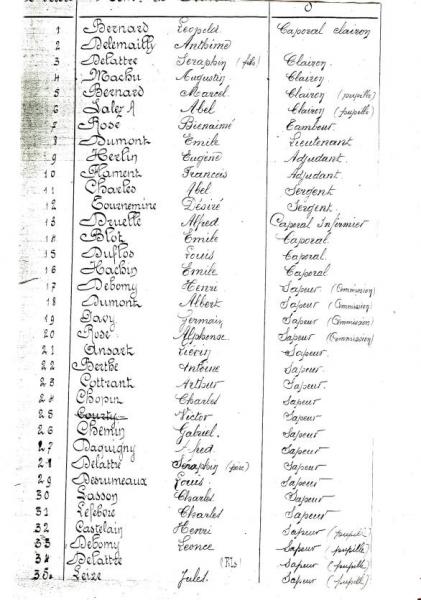 1 Bernard Léopold Caporal clairon
2 Delemailly Anthime
3 Delattre Séraphin (fils) Clairon.
4 Machu Augustin Clairon
5 Bernard Marcel Clairon (pupille)
6 Abel Clairon (pupille)
7 Rose Bienaimé Tambour.
8 Dumont Emile Lieutenant
9 Herlin Eugène Adjudant
10 Flament François Adjudant.
11 Charles Abel Sergent
12 Tournemine Désiré Sergent.
13 Druelle Alfred Caporal Infirmier
14 Blot Emile Caporal.
15 Duflos Louis Caporal.
16 Hachin Emile Caporal
17 Debomy Henri Sapeur (Commission)
18 Dumont Albert Sapeur (Commission)
19 Davy Germain Sapeur (Commission)
20 Rose Alphonse Sapeur (Commission)
21 Ansart Liévin Sapeur.
22 Berthe Antoine Sapeur.
23 Cottrant Arthur Sapeur.
24 Chopin Charles Sapeur
25 Courty Victor Sapeur
26 Chemin Gabriel. Sapeur
27 Daguigny Alfred. Sapeur
28 Delattre Séraphin (père) Sapeur
29 Desrumeaux Louis. Sapeur
30 Lasson Charles Sapeur
31 Lefebvre Charles Sapeur
32 Castelain Henri Sapeur (pupille)
33 Debomy Léonce Sapeur (pupille)
34 Delattre (fils) Sapeur (pupille)
35 Leize Jules. Sapeur (pupille)